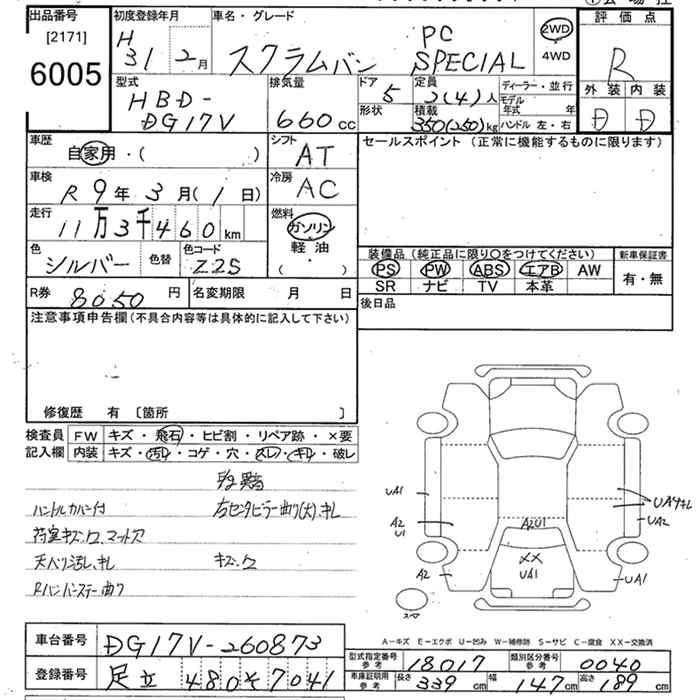 出品番号
[2171]
6005
初度登録年月
H 31 2月
車名・グレード
スクラムバン PC SPECIAL
2WD・4WD
評価点
R
外装 内装
D D
型式
HBD-
DG17V
排気量
660cc
ドア 5
形状
定員 2(4)人
積載 350(250)kg
ディーラー・並行
モデル年式 年
ハンドル 左・右
車歴
自家用・( )
シフト
AT
車検
R 9年 3月( 1日)
冷房
AC
走行
11万3千460km
燃料
ガソリン
軽油
・( )
色
シルバー
色替
色コード
Z2S
R券 8050円
名変期限 月 日
セールスポイント(正常に機能するものに限ります)
装備品(純正品に限り○をつけてください)
PS PW ABS エアB AW
SR ナビ TV 本革
新車保証書
有・無
後日品
注意事項申告欄(不具合内容等は具体的に記入して下さい)
修復歴 有 〔箇所 〕
検査員記入欄
FW キズ・飛石・ヒビ割・リペア跡・×要
内装 キズ・汚れ・コゲ・穴・スレ・キレ・破レ
ハンドルカバー付
右センターピラー曲り(大)、キレ
荷室キズ、ワ、マット穴
天ベリ汚レ、キレ
キズ、ワ
UA1
A2
U1
A2
A2U1
XX
UA1
UA4キレ
UA2
UA1
スペア
A−キズ E−エクボ U−凹み W−補修跡 S−サビ C−腐食 XX−交換済
車台番号 DG17V-260873
登録番号 足立 480そ7041
型式指定番号参考 18017
類別区分番号参考 0040
車庫証明用参考 長さ 339cm 幅 147cm 高さ 189cm